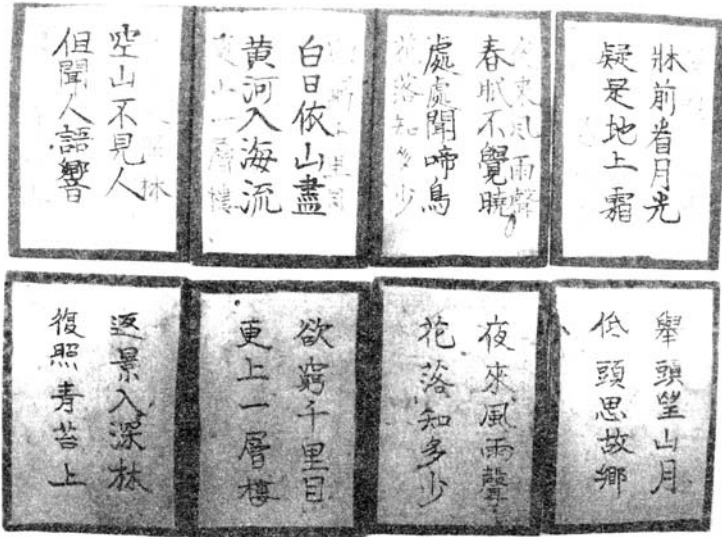 牀前看月光
疑是地上霜
春眠不覺曉
處處聞啼鳥
白日依山盡
黃河入海流
空山不見人
但聞人語響
舉頭望山月
低頭思故鄉
夜來風雨聲
花落知多少
欲窮千里目
更上一層樓
返景入深林
復照青苔上